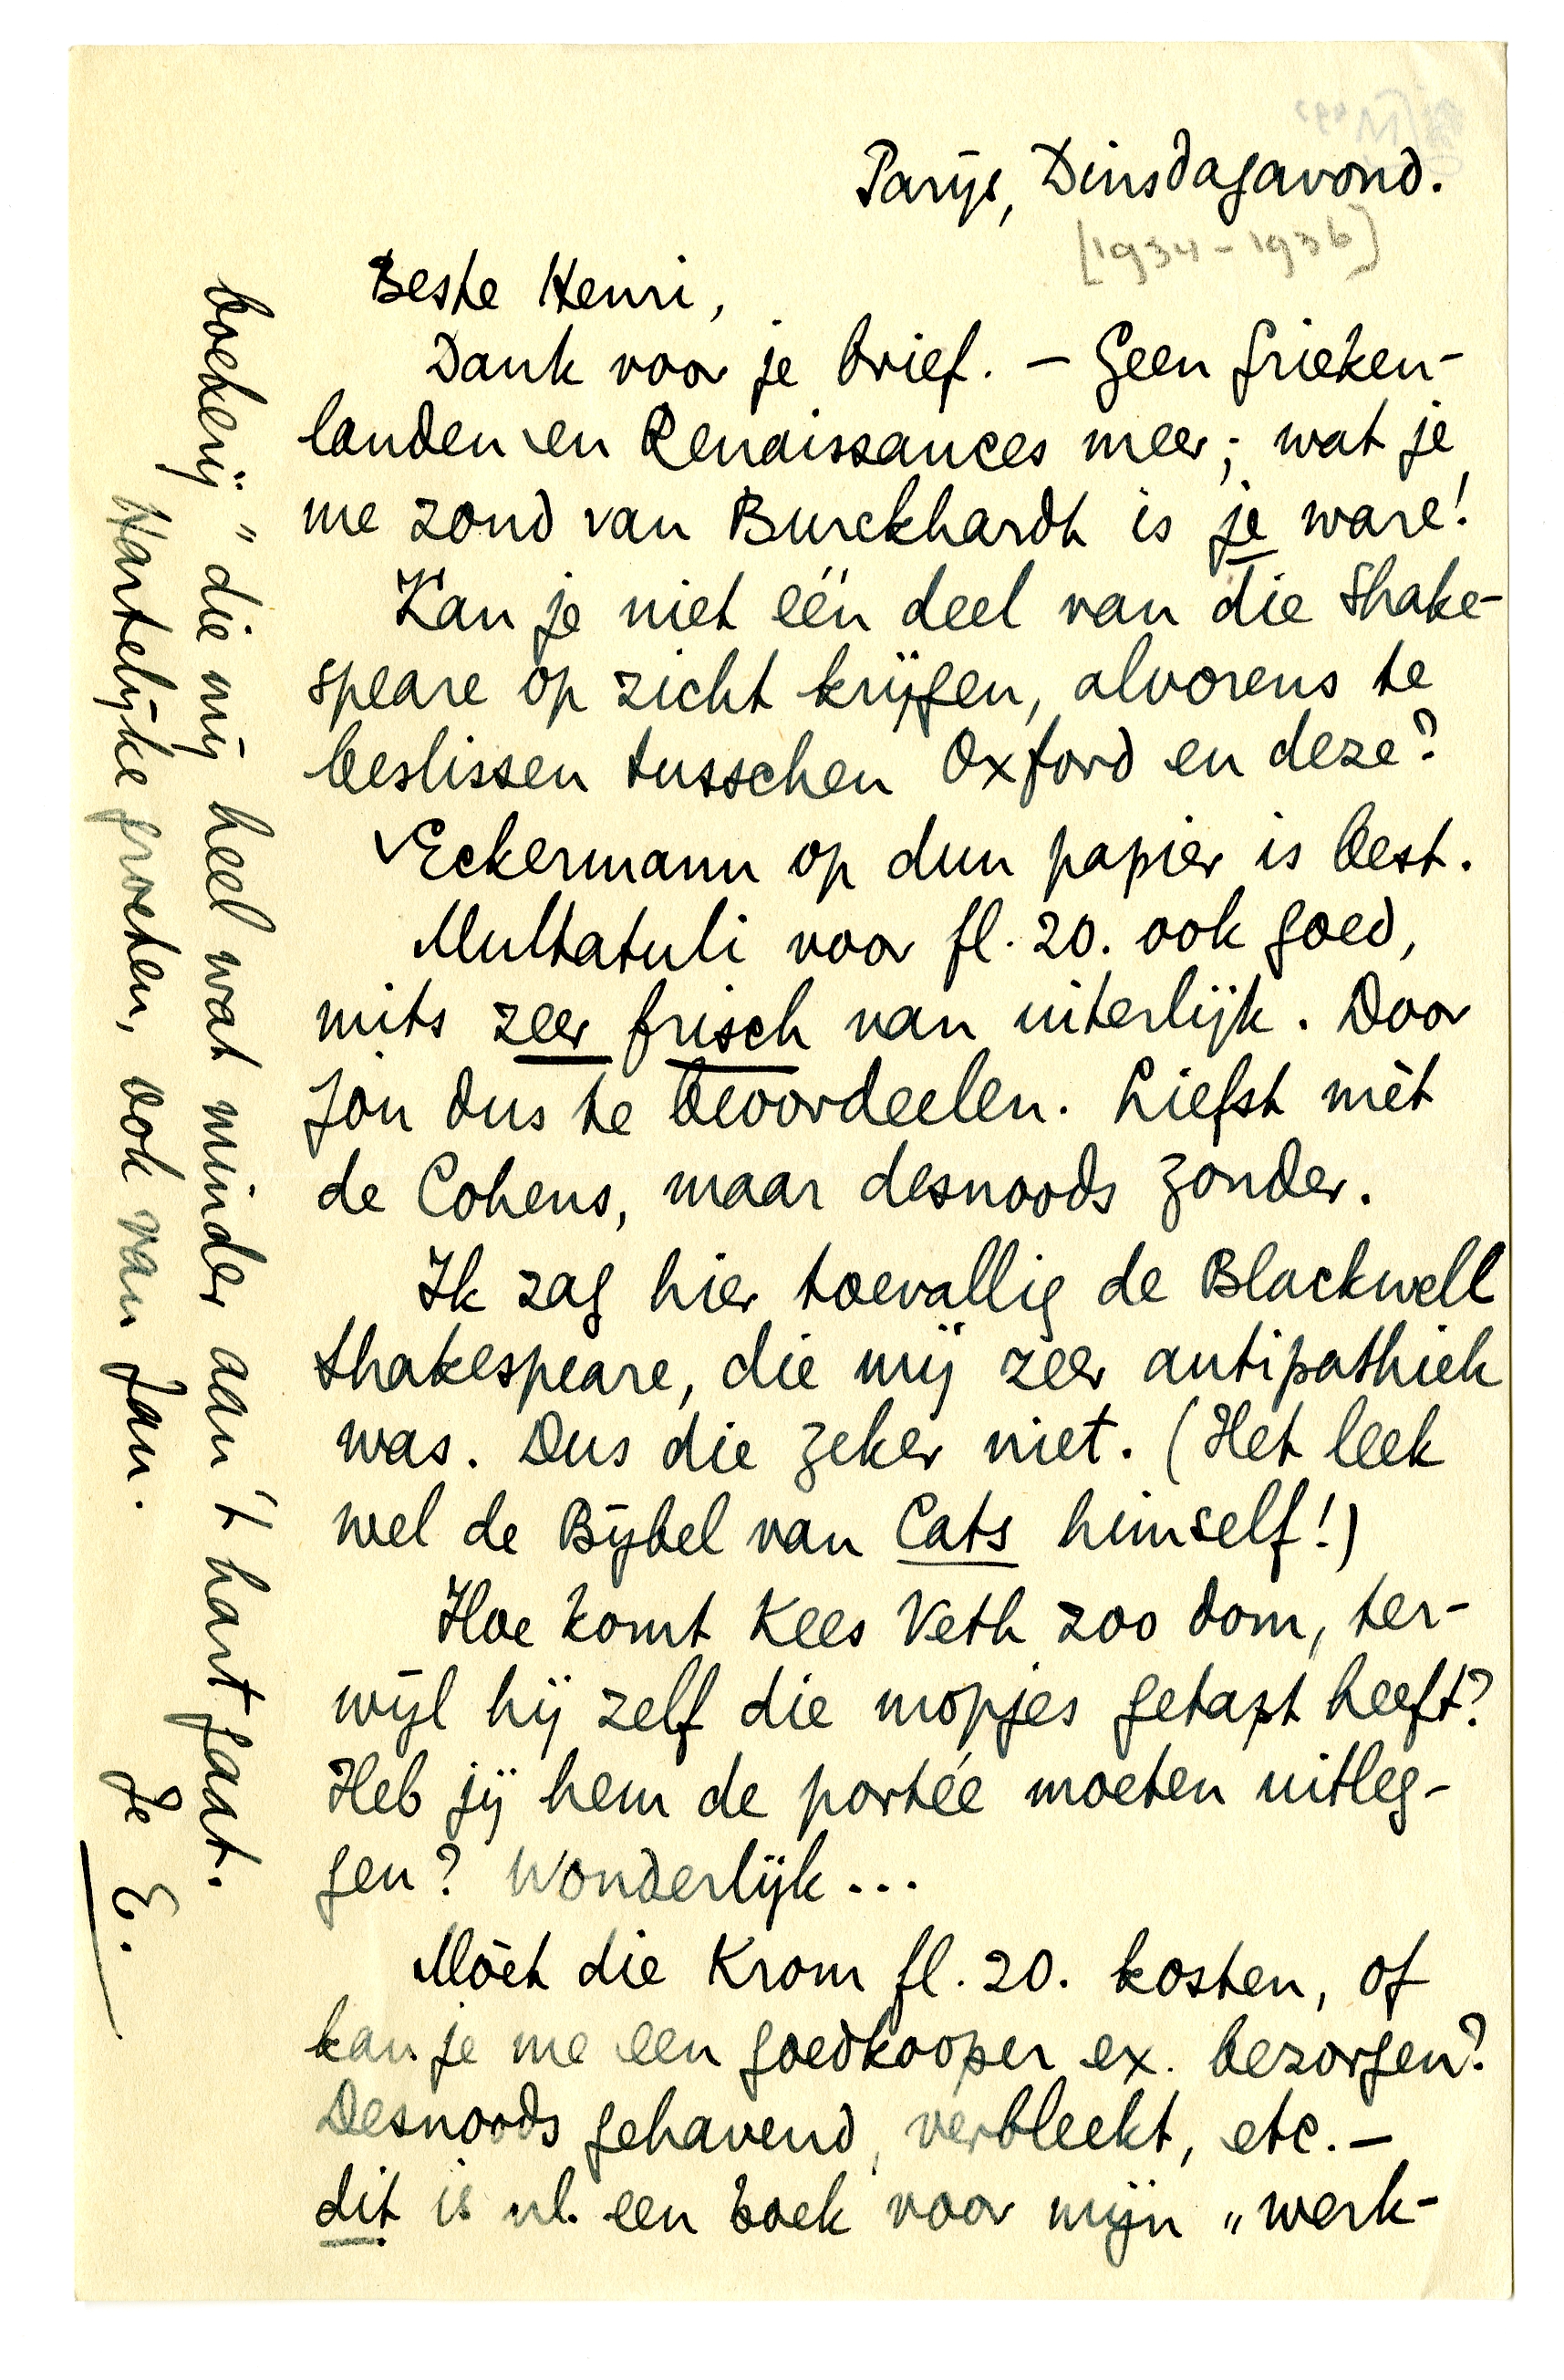 Parijs, Dinsdagavond.
[1934-1936]
Beste Henri,
Dank voor je brief. – Geen Grieken-
landen en Renaissances meer; wat je
me zond van Burckhardt is je ware!
Kan je niet één deel van die Shake-
speare op zicht krijgen, alvorens te
beslissen tusschen Oxford en deze?
Eckermann op dun papier is best.
Multatuli voor fl. 20. ook goed,
mits zeer frisch van uiterlijk. Door
jòu dus te beoordeelen. Liefst mèt
de Cohens, maar desnoods zonder.
Ik zag hier toevallig de Blackwell
Shakespeare, die mij zéér antipathiek
was. Dus die zeker niet. (Het leek
wel de Bijbel van Cats himself!)
Hoe komt Kees Veth zoo dom, ter-
wijl hij zelf die mopjes getapt heeft?
Heb jij hem de portée moeten uitleg-
gen? Wonderlijk...
Mòet die Krom fl. 20. kosten, of
kan je me een goedkooper ex. bezorgen?
Desnoods gehavend, verbleekt, etc. –
dit is nl. een boek voor mijn „werk-
boekerij” die mij heel wat minder aan 't hart gaat.
Hartelijke groeten, ook van Jan.
Je E.